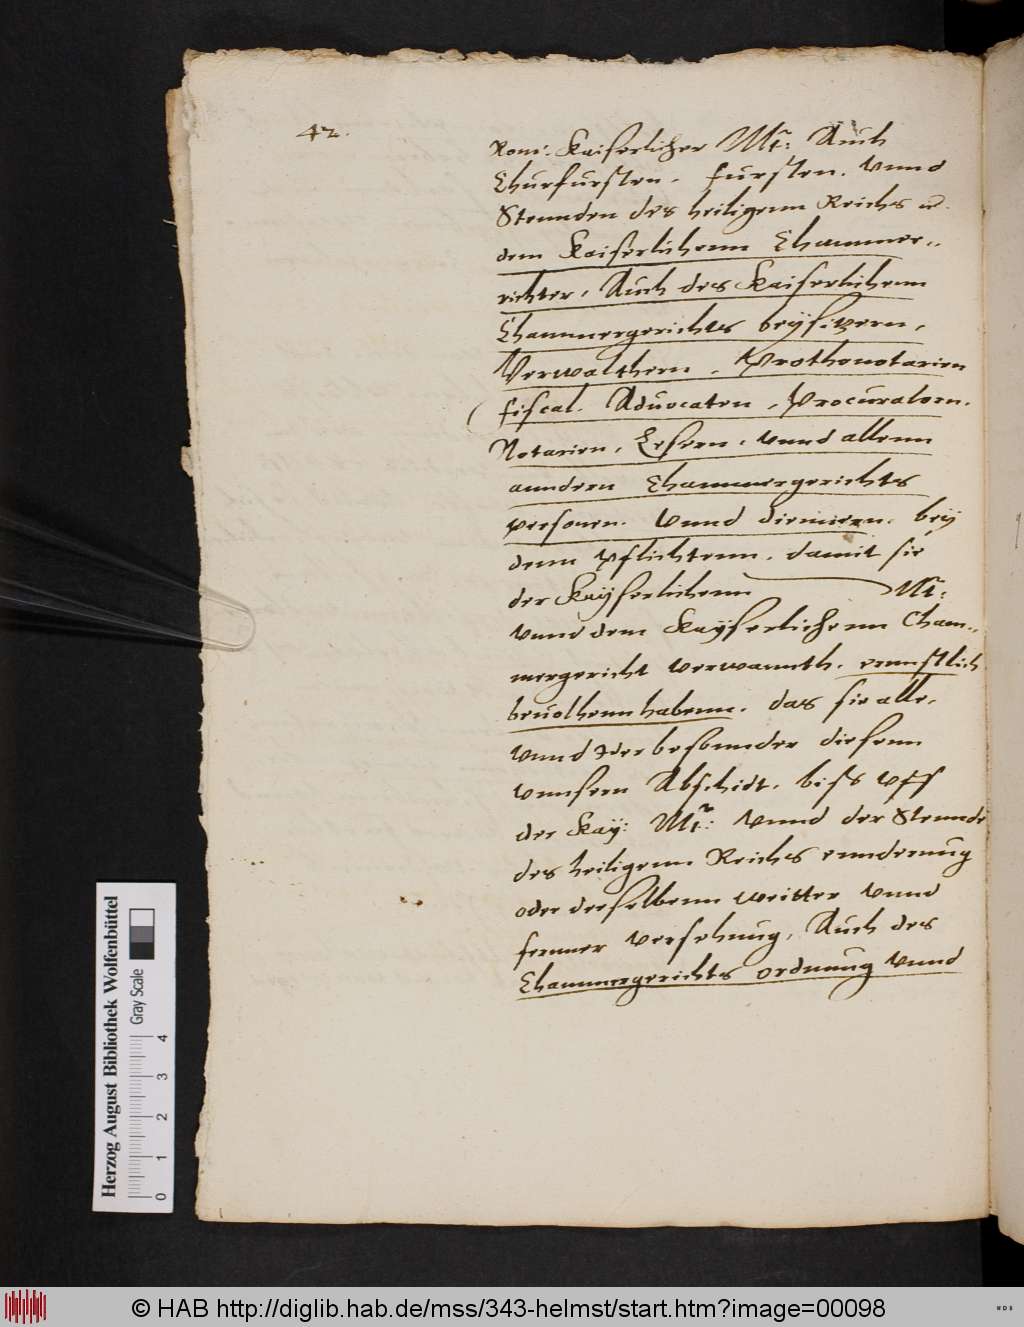 42.
Rom: Kaiserlicher Mt: Auch
Churfursten. fursten. vnnd
Stennden des heiligenn Reichs
dem Kaiserlichenn Chammer„
richter, Auch des Kaiserlichenn
Chammergerichts beÿsitzern,
Verwalthern, Prothonotarien
fiscal. Aduocaten, Procuratorn.
Notarien, Lesern, vnnd allenn
anndern Chammergerichts
personen. vnnd diennern, beÿ
denn Pflichtenn, damit sie
der Kaÿserlichenn Mt:
vnnd dem Kaÿserlichenn Cham„
mergericht verwannth, ernnstlich
beuolhenn habenn, das sie alle,
vnnd Jder besonnder diesenn
vnnsern Abschidt, biss vff
der Kaÿ: Mt: vnnd der Stennde
des heiligenn Reichs ennderung
oder derselbenn weitter vnnd
fernner versehung, Auch des
Chammergerichts ordnung vnnd
Herzog August Bibliothek Wolfenbüttel
Gray Scale
0 1 2 3 4
© HAB http://diglib.hab.de/mss/343-helmst/start.htm?image=00098